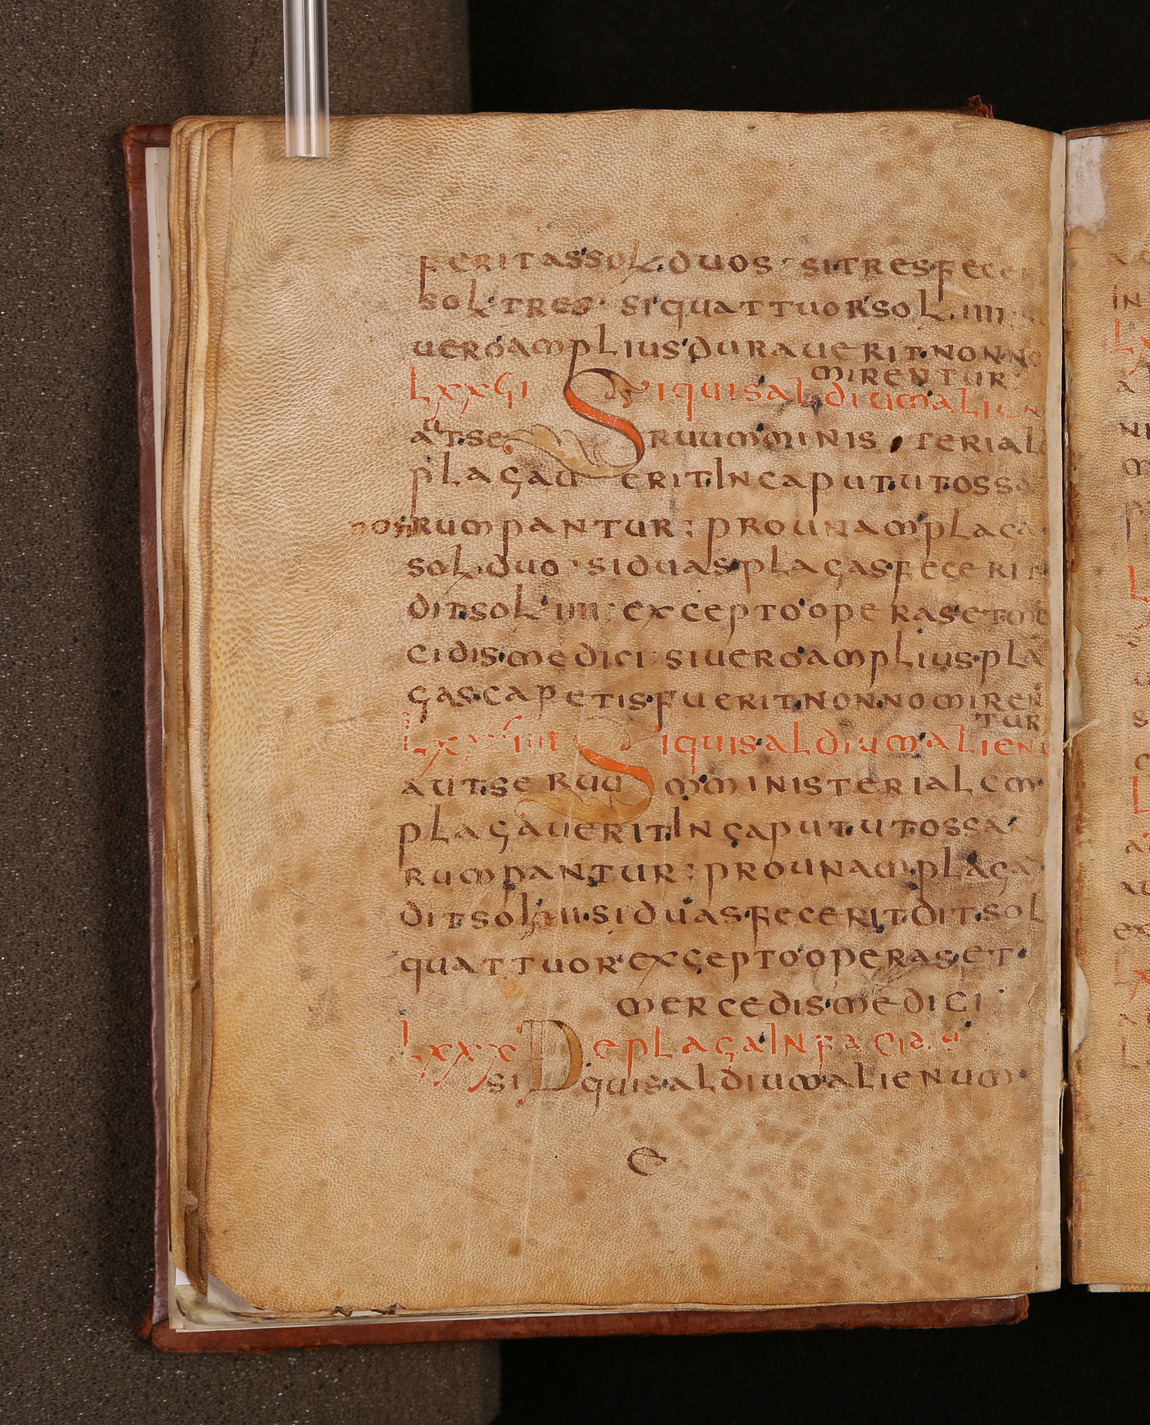 feritassol.duos·sitresfece
sol·tres·siquattuorsol.iiii·
ueroamplius·durauerit·nonno
mirentur
Lxxvi Siquisaldiumalien
aut·seruumministerial
plagauerit·Incaput·utossa
nonrumpantur:prounamplaga
sol·duo·siduasplagasfecerit
dit·sol·iiii·exceptooperas·etmer
cidismedici·siueroamplius·pla
gascapetisfuerit·nonnomiren
tur
siquisaldiumaliem
aut·seruumministerialem
plagauerit·Incaput·utossa
rumpantur:prounamplaga
dit·sol·iii·siduasfecerit·dit·sol
quattuor·exceptooperas·et·
mercedis·medici
Lxxx DeplagaInfacia.
siquis·aldiumalienum
e